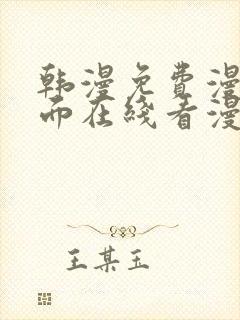 韩漫免费漫
而在线看漫
王某玉